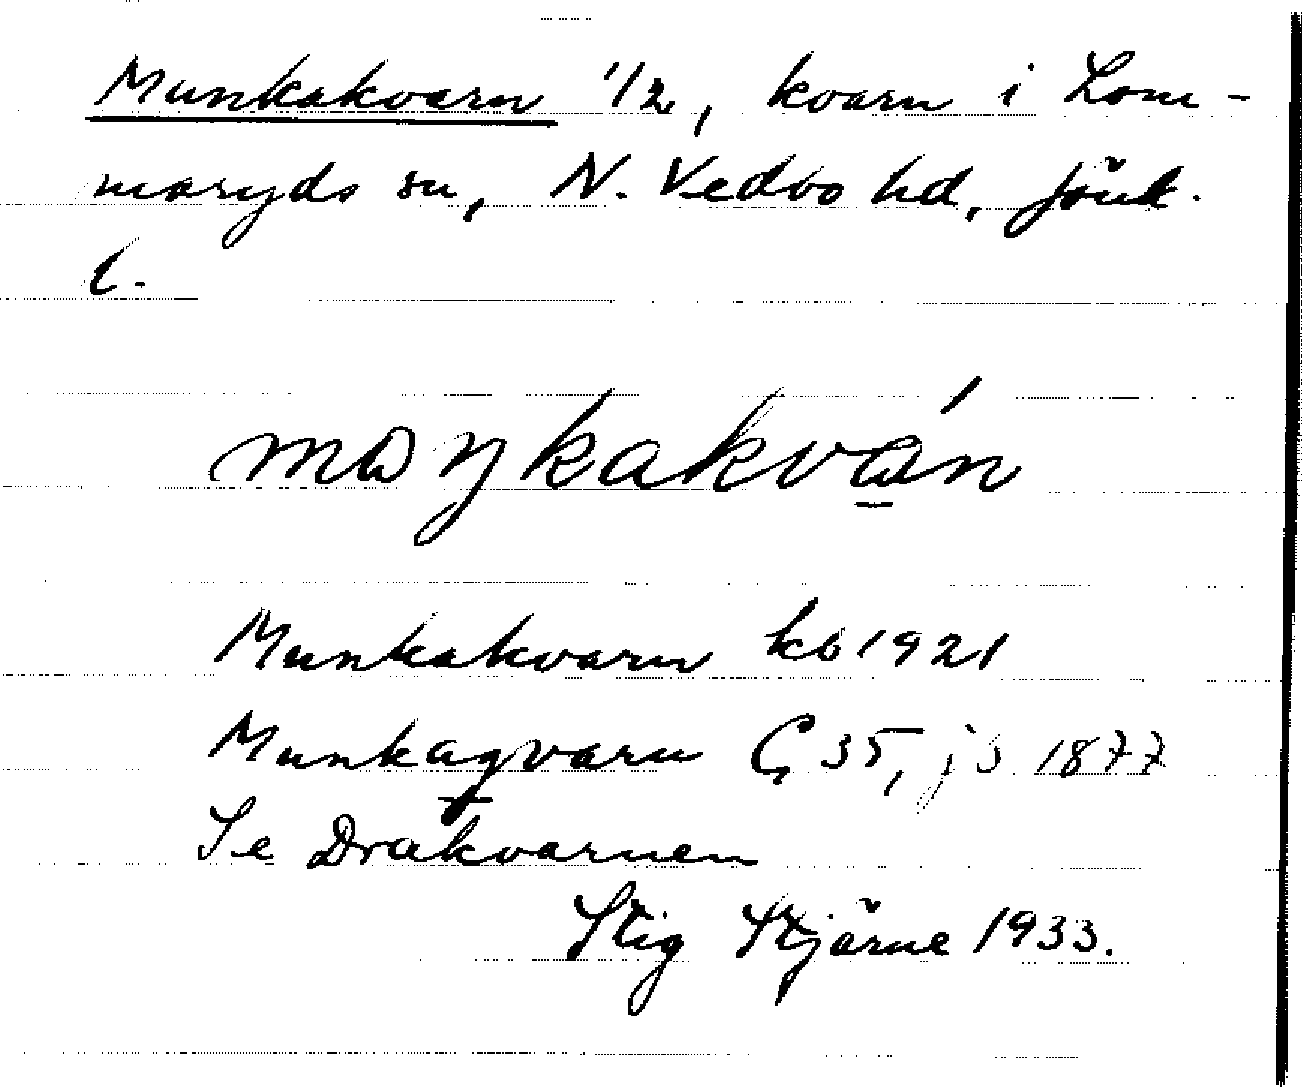 Munkakvarn 1/2, kvarn i Lom-
maryds sn, N. Vedbo hd, Jönk.
l.
måŋkakvá̱n
Munkakvarn kb 1921
Munkaqvarn G 35, js 1877
Se Drakvarnen
Stig Stjärne 1933.